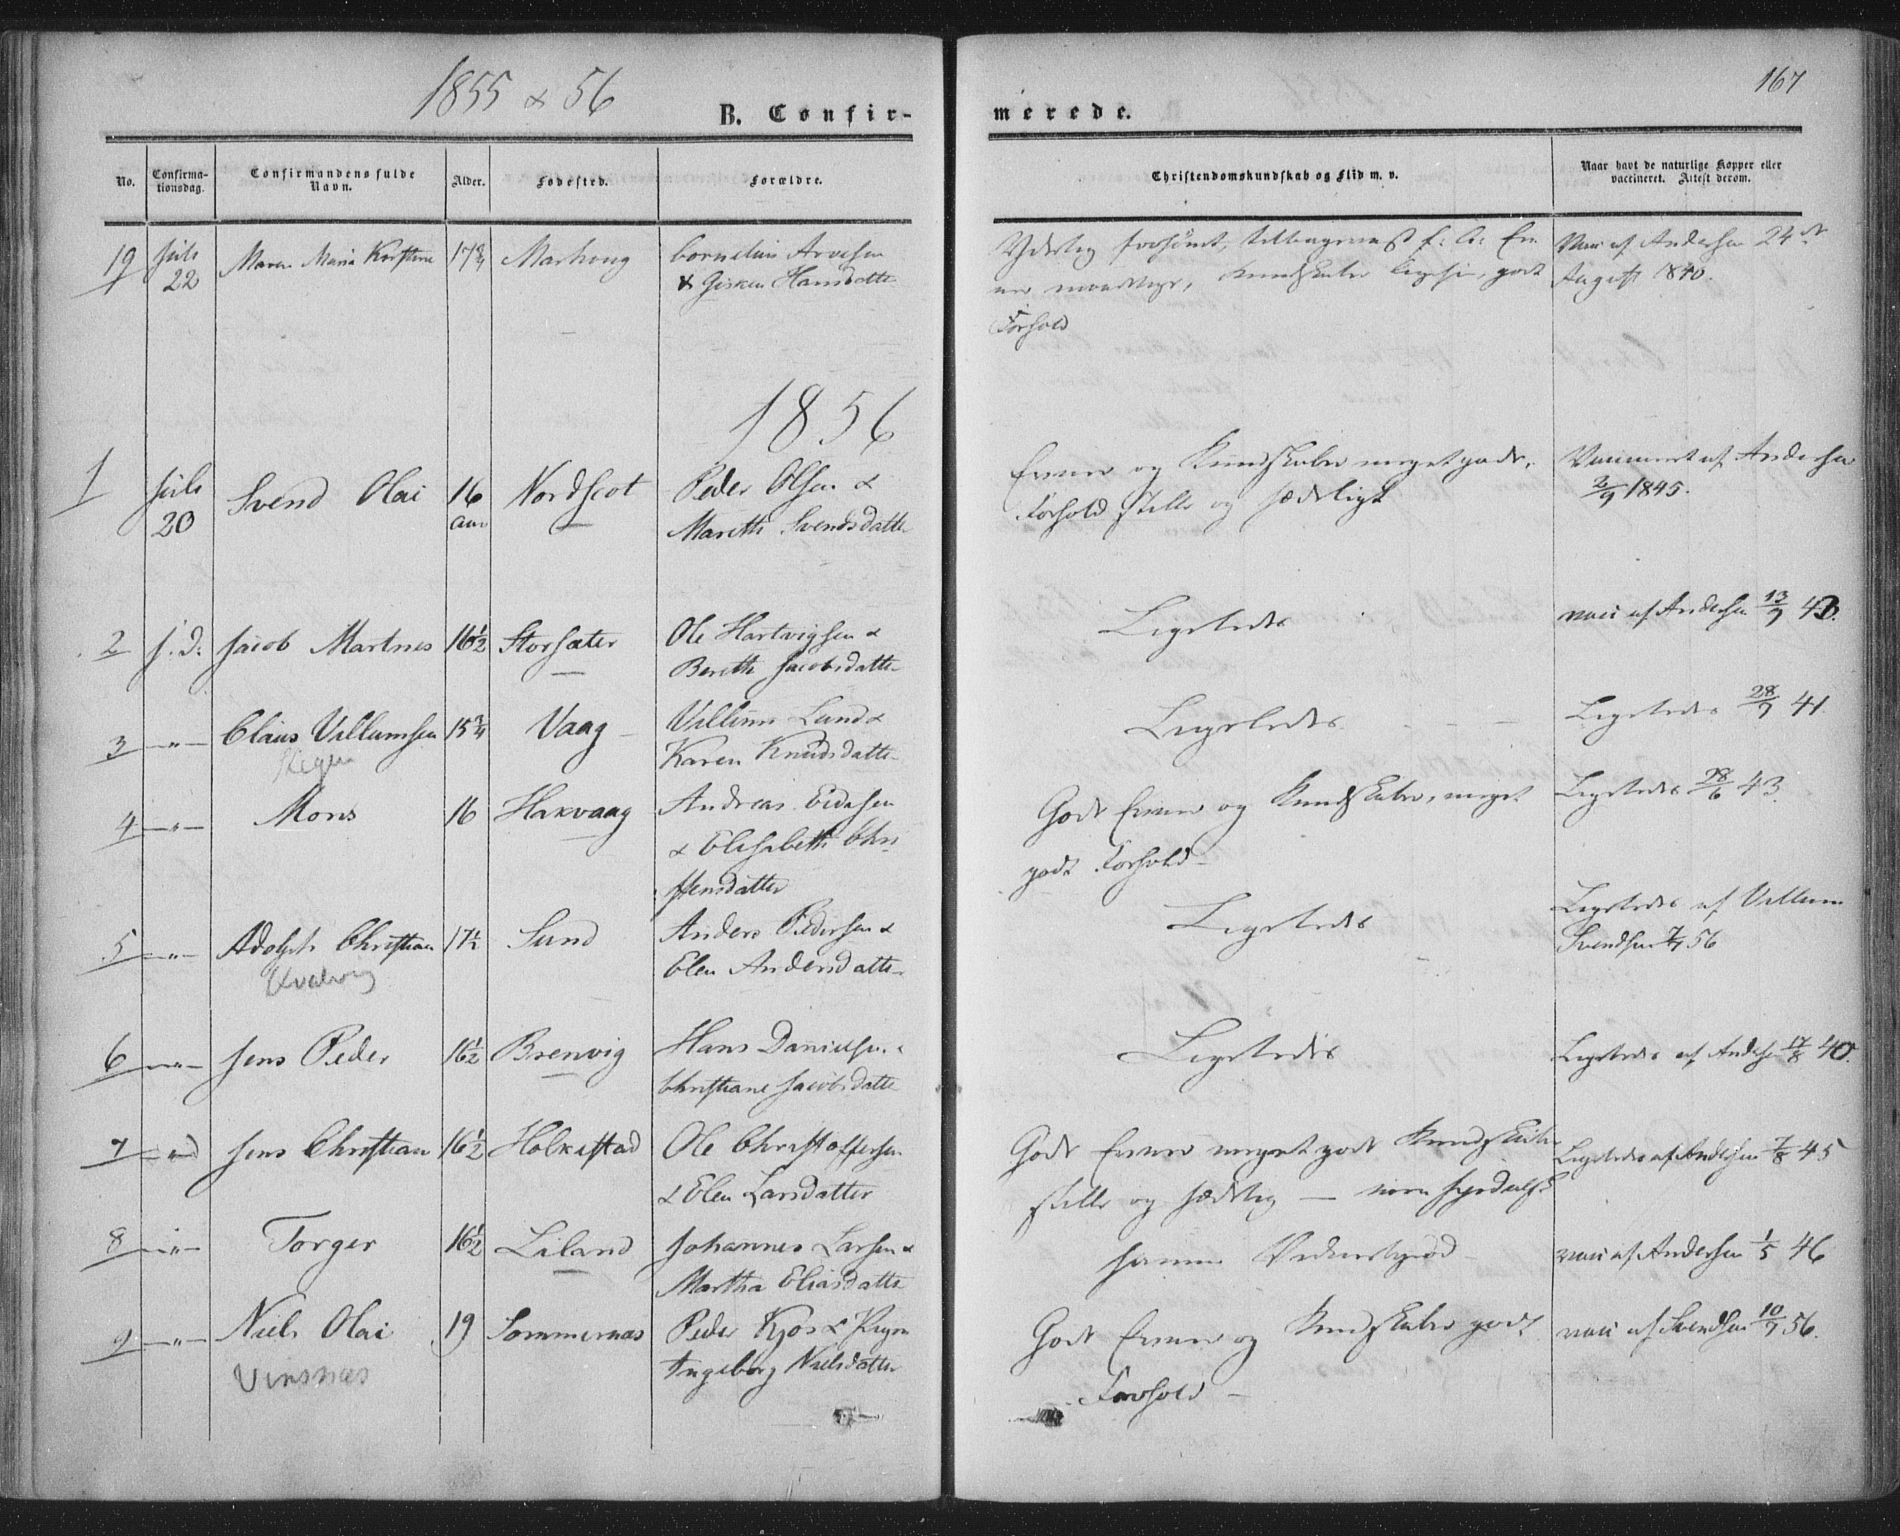 1855 & 56
167
B. Confir-
merede.
No.
Confirma-
tionsdag.
Confirmandens fulde
Navn.
Alder.
Fødested.
Forældre.
Christendomskundskab og Flid m. v.
Naar havt de naturlige Kopper eller
vaccineret. Attest derom.
19 Juli Maren Maria 17 3/4 Cornelius Arvesen
22 & Gisken Hansdatter
Vac af Andersen 24de
August 1840.
Forhold
1856
1 Juli Svend Olai 16 Nordscot Peder Olsen &
20 aar Mareth Svendsdatter
Evner og Kundskaber meget gode,
Forhold stille og sædeligt
Vaccineret af Andersen
2/9 1845.
2 s. D. Jacob Martnes 16 1/2 Storsæter Ole Hartvigsen &
Bereth Jacobsdatter
Ligeledes
vacc af Andersen 13/9
3 —"— Claus Villumsen 15 3/4 Vaag Villum Lund &
Karen Knudsdatter
Ligeledes
Ligeledes 28/9 41.
4 —"— Mons 16 Haxvaag Andreas
& Elisabeth Chri
stensdatter
Godt Evner og Kundskaber, meget
godt Forhold
Ligeledes 28/6 43.
5 —"— Adolph Christian 17 1/2 Sund Anders Pedersen &
Elen Andersdatter
Ligeledes
Ligeledes af Villum
Svendsen 7/7 56
6 —"— Jens Peder 16 1/2 Brenvig Hans Danielsen &
Christiane Jacobsdatter
Ligeledes
Ligeledes af Andersen 17/8 40.
7 Jens Christian 16 1/2 Holkestad Ole Christoffersen
& Elen Larsdatter
Godt Evner meget godt Kundskaber
stille og sædelig —
Ligeledes af Andersen 7/8 45
8 —"— Torger 16 1/2 Liland Johannes Larsen &
Martha Eliasdatter
samme Vidnesbyrd
vacc af Andersen 1/5 46
9 —"— Niels Olai 19 Sommernæs Peder Kjøs &
Vinsnæs
Ingeborg Nielsdatter
Godt Evner og Kundskaber godt
Forhold —
vacc af Svendsen 10/7 56.